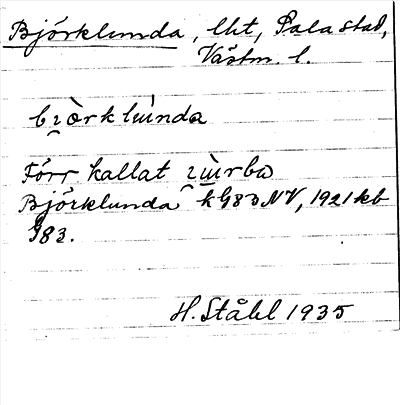 Björklunda, lht, Sala stad,
Västm. l.
Förr kallat
Björklunda kG83NV, 1921 kb
G83.
H. Ståhl 1935